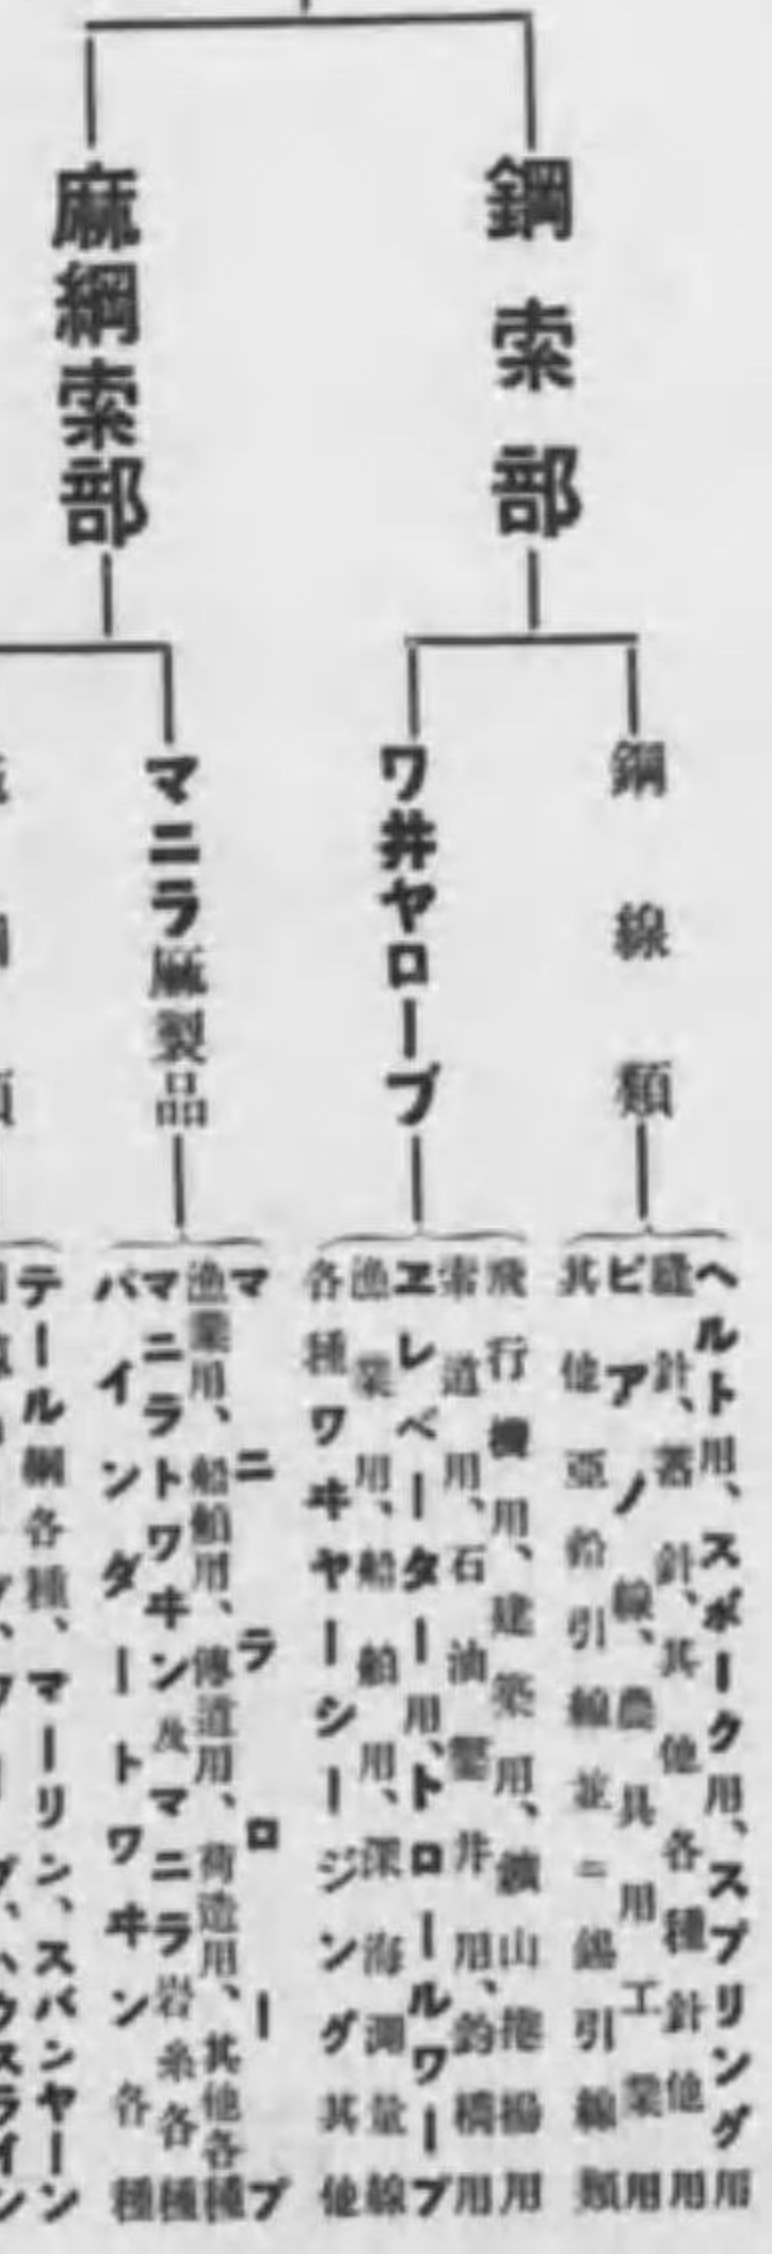 鋼索部
鋼線類
ヘルト用、スポーク用、スプリング用
縫針、蓄針、其他各種針他用
ピアノ線、農具用工業用
其他亜鉛引線並ニ錫引線類
ワ井ヤロープ
飛行機用、建築用、鑛山捲揚用
索道用、石油鑿井用、釣橋用
ヱレベーター用、トロールワープ
漁業用、船舶用、深海測量線
各種ワヰヤーシージング其他
麻綱索部
マニラ麻製品
マニラロープ
漁業用、船舶用、傳道用、荷造用、其他各種
マニラトワヰン及マニラ岩糸各種
バインダートワヰン各種
テール綱各種、マーリン、スパンヤーン